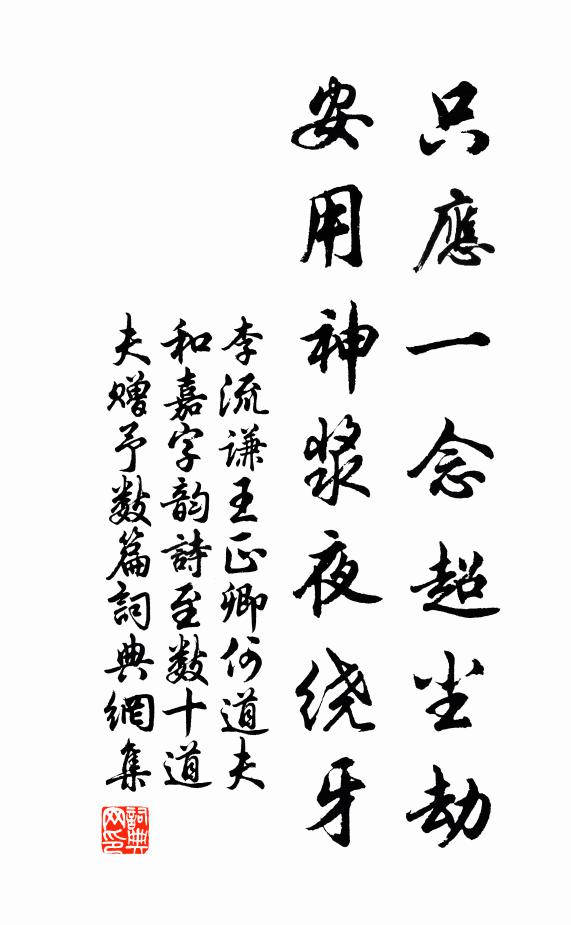 只應一念超尘劫
安用神浆夜绕牙
李流谦王正卿何道夫
和嘉字韵詩至数十道
夫赠予数篇詞典網集
詞典网印